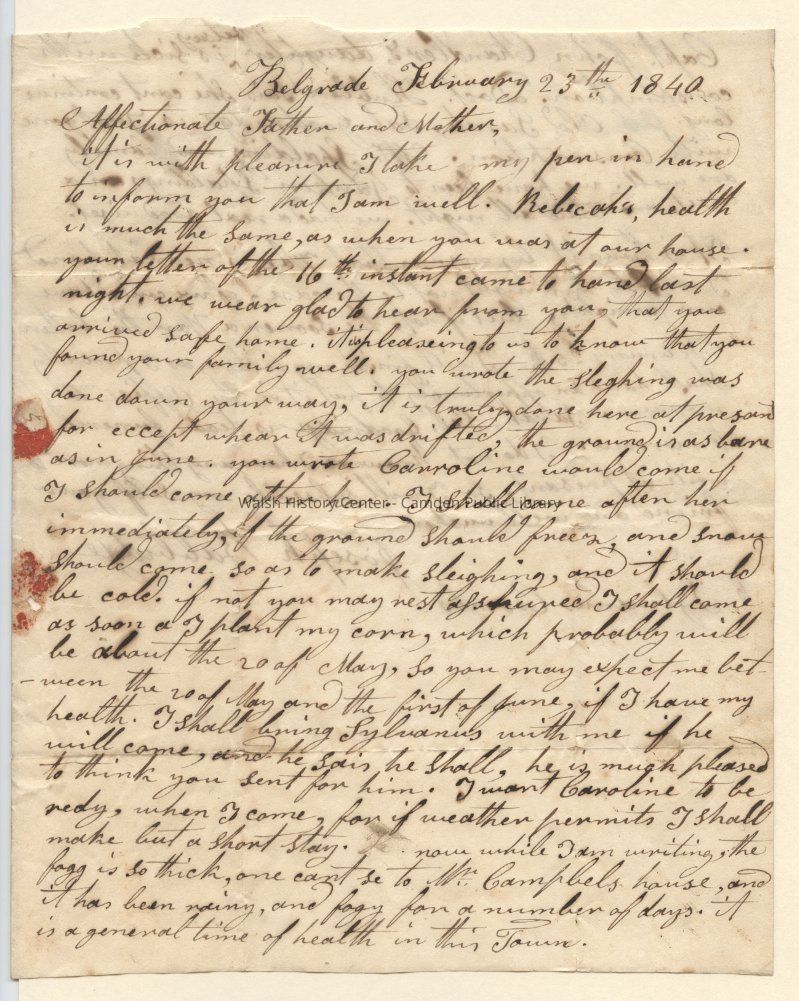 Belgrade February 23th 1840
Affectionate Father and Mother,
it is with pleasure I take my pen in hand
to inform you that I am well. Rebecah's, health
is much the same, as when you was at our house.
your letter of the 16th instant came to hand last
night. we wear glad to hear from you, that you
arrived safe home. it is pleaseing to us to know that you
found your family well. you wrote the sleghing was
done down your way, it is truly done here at presant
for eccept whear it was drifted, the ground is as bare
as in June. you wrote Carroline would come if
I should come I shall come after her
Walsh History Center - Camden Public Library
immediately, if the ground should freez, and snow
should come so as to make sleighing, and it should
be cold. if not you may rest asshured I shall come
as soon a I plant my corn, which probably will
be about the 20 of May, so you may expect me bet-
-ween the 20 of May and the first of June, if I have my
health. I shall bring Sylvanus with me if he
will come, and he sais he shall, he is much pleased
to think you sent for him. I want Caroline to be
redy, when I come, for if weather permits I shall
make but a short stay. now while I am writing, the
fogg is so thick, one cant se to Mr. Campbels house, and
it has been rainy, and fogy for a number of days. it
is a general time of health in this Town.